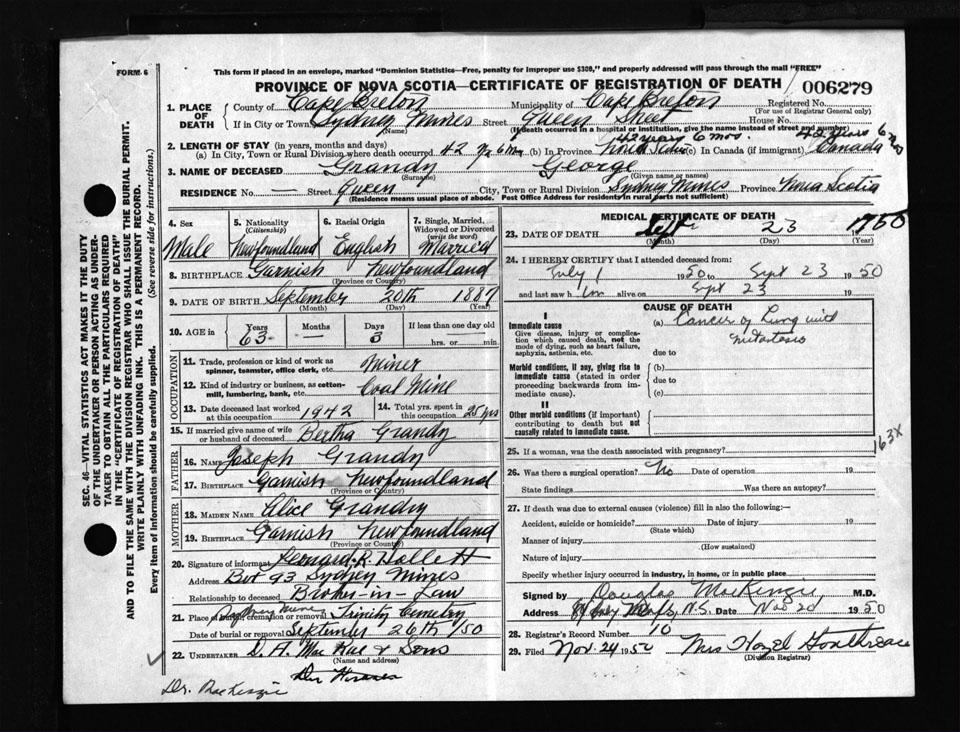 FORM 6
This form if placed in an envelope, marked "Dominion Statistics—Free, penalty for improper use $300", and properly addressed will pass through the mail "FREE"
PROVINCE OF NOVA SCOTIA—CERTIFICATE OF REGISTRATION OF DEATH
006279
1. PLACE OF DEATH
County of Cape Breton Municipality of Cape Breton Registered No.
(For use of Registrar General only)
If in City or Town Sydney Mines Street Queen Street House No.
(Name) (If death occurred in a hospital or institution, give the name instead of street and number)
2. LENGTH OF STAY (in years, months and days) 42 years 6 mos. 42 years 6 mos
(a) In City, Town or Rural Division where death occurred 42 yrs 6 mos (b) in Province Nova Scotia (c) In Canada (if immigrant) Canada
3. NAME OF DECEASED Grandy George
(Surname) (Given name or names)
RESIDENCE No. — Street Queen City, Town or Rural Division Sydney Mines Province Nova Scotia
(Residence means usual place of abode. Post Office Address for Residents in rural parts not sufficient)
4. Sex Male
5. Nationality (Citizenship) Newfoundland
6. Racial Origin English
7. Single, Married, Widowed or Divorced (write the word) Married
8. BIRTHPLACE Garnish Newfoundland
(Province or County)
9. DATE OF BIRTH September 20th 1887
(Month) (Day) (Year)
10. AGE in Years 63 Months — Days 3 If less than one day old hrs. or min.
OCCUPATION
11. Trade, profession or kind of work as spinner, teamster, office clerk, etc. Miner
12. Kind of industry or business, as cotton-mill, lumbering, bank, etc. Coal Mine
13. Date deceased last worked at this occupation 1942
14. Total yrs. spent in this occupation 25 yrs
15. If married give name of wife or husband of deceased Bertha Grandy
FATHER
16. Name Joseph Grandy
17. BIRTHPLACE Garnish Newfoundland
(Province or Country)
MOTHER
18. MAIDEN NAME Alice Grandy
19. BIRTHPLACE Garnish Newfoundland
(Province or Country)
20. Signature of informant R. Hollett
Address Box 93 Sydney Mines
Relationship to deceased Brother-in-Law
21. Place of burial, cremation or removal Sydney Mines Trinity Cemetery
Date of burial or removal September 26th /50
22. UNDERTAKER D. A. Mac Rae & Sons
(Name and address)
Dr. MacKenzie
MEDICAL CERTIFICATE OF DEATH
23. DATE OF DEATH Sept 23 1950
(Month) (Day) (Year)
24. I HEREBY CERTIFY that I attended deceased from:
July 1 1950 to Sept 23 1950
and last saw him alive on Sept 23 19
CAUSE OF DEATH
I
Immediate cause
Give disease, injury or complication which caused death, not the mode of dying, such as heart failure, asphyxia, asthenia, etc.
(a) Cancer of Lung with metastasis
due to
Morbid conditions, if any, giving rise to immediate cause (stated in order proceeding backwards from immediate cause).
(b)
due to
(c)
II
Other morbid conditions (if important) contributing to death but not causally related to immediate cause.
163X
25. If a woman, was the death associated with pregnancy?
26. Was there a surgical operation? No Date of operation 19
State findings Was there an autopsy?
27. If death was due to external causes (violence) fill in also the following:—
Accident, suicide or homicide? Date of injury 19
(State which)
Manner of injury
(How sustained)
Nature of injury
Specify whether injury occurred in industry, in home, or in public place
Signed by Douglas MacKenzie M.D.
Address Sydney Mines, N.S. Date Nov 20 1950
28. Registrar's Record Number 10
29. Filed Nov. 24 1950 Mrs Hazel
(Division Registrar)
SEC. 46—VITAL STATISTICS ACT MAKES IT THE DUTY
OF THE UNDERTAKER OR PERSON ACTING AS UNDERTAKER TO OBTAIN ALL THE PARTICULARS REQUIRED
IN THE "CERTIFICATE OF REGISTRATION OF DEATH"
AND TO FILE THE SAME WITH THE DIVISION REGISTRAR WHO SHALL ISSUE THE BURIAL PERMIT.
WRITE PLAINLY WITH UNFADING INK. THIS IS A PERMANENT RECORD.
Every item of Information should be carefully supplied. (See reverse side for instructions.)